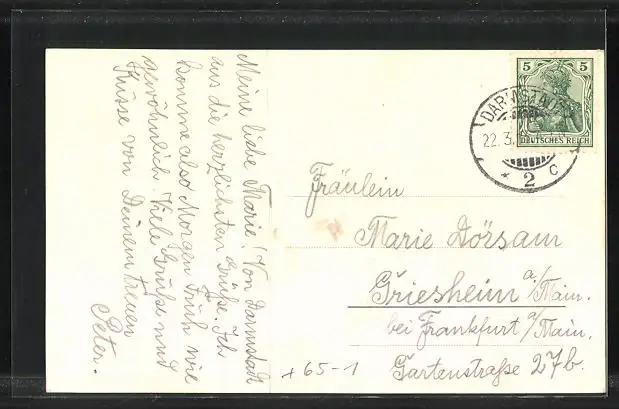 Meine liebe Marie! Von Darmstadt
aus die herzlichsten Grüße. Ich
komme also Morgen Früh wie
gewöhnlich. Viele Grüße und
Küsse von Deinem treuen
Peter.
5 5
DEUTSCHES REICH
DARMSTADT
22.3.
* 2 c
Fräulein
Marie Dörsam
Griesheim a/Main.
bei Frankfurt a/Main.
Gartenstraße 27b.
+ 65-1